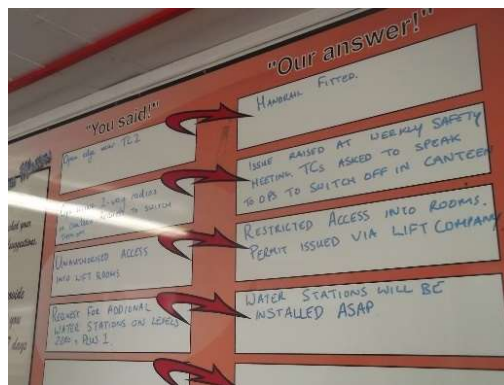 "You said!"
"Our answer!"
Open edge near TC2
HANDRAIL FITTED.
2-way radios
in canteen to switch
ISSUE RAISED AT WEEKLY SAFETY
MEETING, TCs ASKED TO SPEAK
TO OPS TO SWITCH OFF IN CANTEEN
UNAUTHORISED ACCESS
INTO LIFT ROOMS.
RESTRICTED ACCESS INTO ROOMS.
PERMIT ISSUED VIA LIFT COMPANY
REQUEST FOR ADDIONAL
WATER STATIONS ON LEVELS
ZERO & PLUS 1.
WATER STATIONS WILL BE
INSTALLED ASAP
you
days